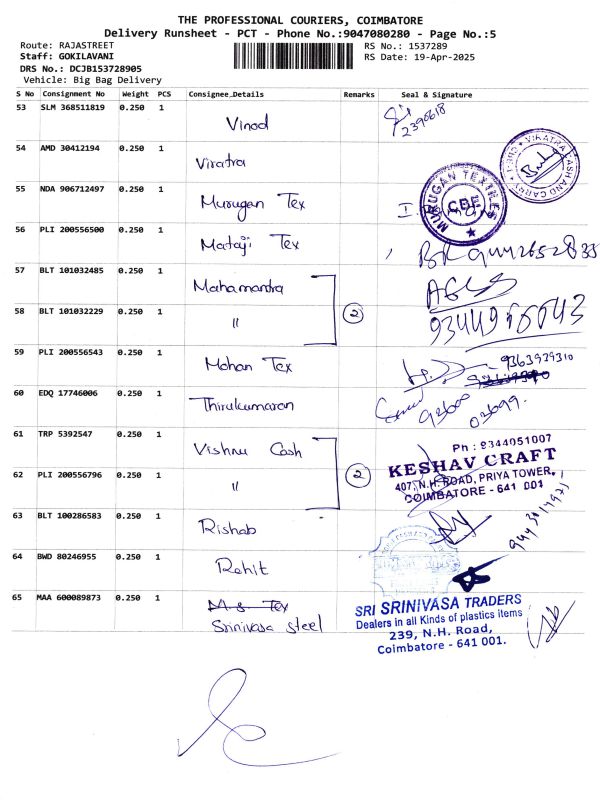 THE PROFESSIONAL COURIERS, COIMBATORE
Delivery Runsheet - PCT - Phone No.:9047080280 - Page No.:5
Route: RAJASTREET
RS No.: 1537289
Staff: GOKILAVANI
RS Date: 19-Apr-2025
DRS No.: DCJB153728905
Vehicle: Big Bag Delivery
S No Consignment No Weight PCS Consignee Details Remarks Seal & Signature
53 SLM 368511819 0.250 1 Vinod
54 AMD 30412194 0.250 1 Viratra
VIRATRA CASH AND CARRY
55 NDA 906712497 0.250 1 Murugan Tex
MURUGAN TEXTILES CBE
56 PLI 200556500 0.250 1 Mataji Tex
57 BLT 101032485 0.250 1 Mahamantra
58 BLT 101032229 0.250 1 " 2
59 PLI 200556543 0.250 1 Mohan Tex 9363929310
60 EDQ 17746006 0.250 1 Thirukumaran
61 TRP 5392547 0.250 1 Vishnu Cash
Ph : 9344051007
KESHAV CRAFT
407, N.H. ROAD, PRIYA TOWER,
COIMBATORE - 641 001
62 PLI 200556796 0.250 1 " 2
63 BLT 100286583 0.250 1 Rishab
64 BWD 80246955 0.250 1 Rohit
65 MAA 600089873 0.250 1 M.S Tex
Srinivasa steel
SRI SRINIVASA TRADERS
Dealers in all Kinds of plastics items
239, N.H. Road,
Coimbatore - 641 001.